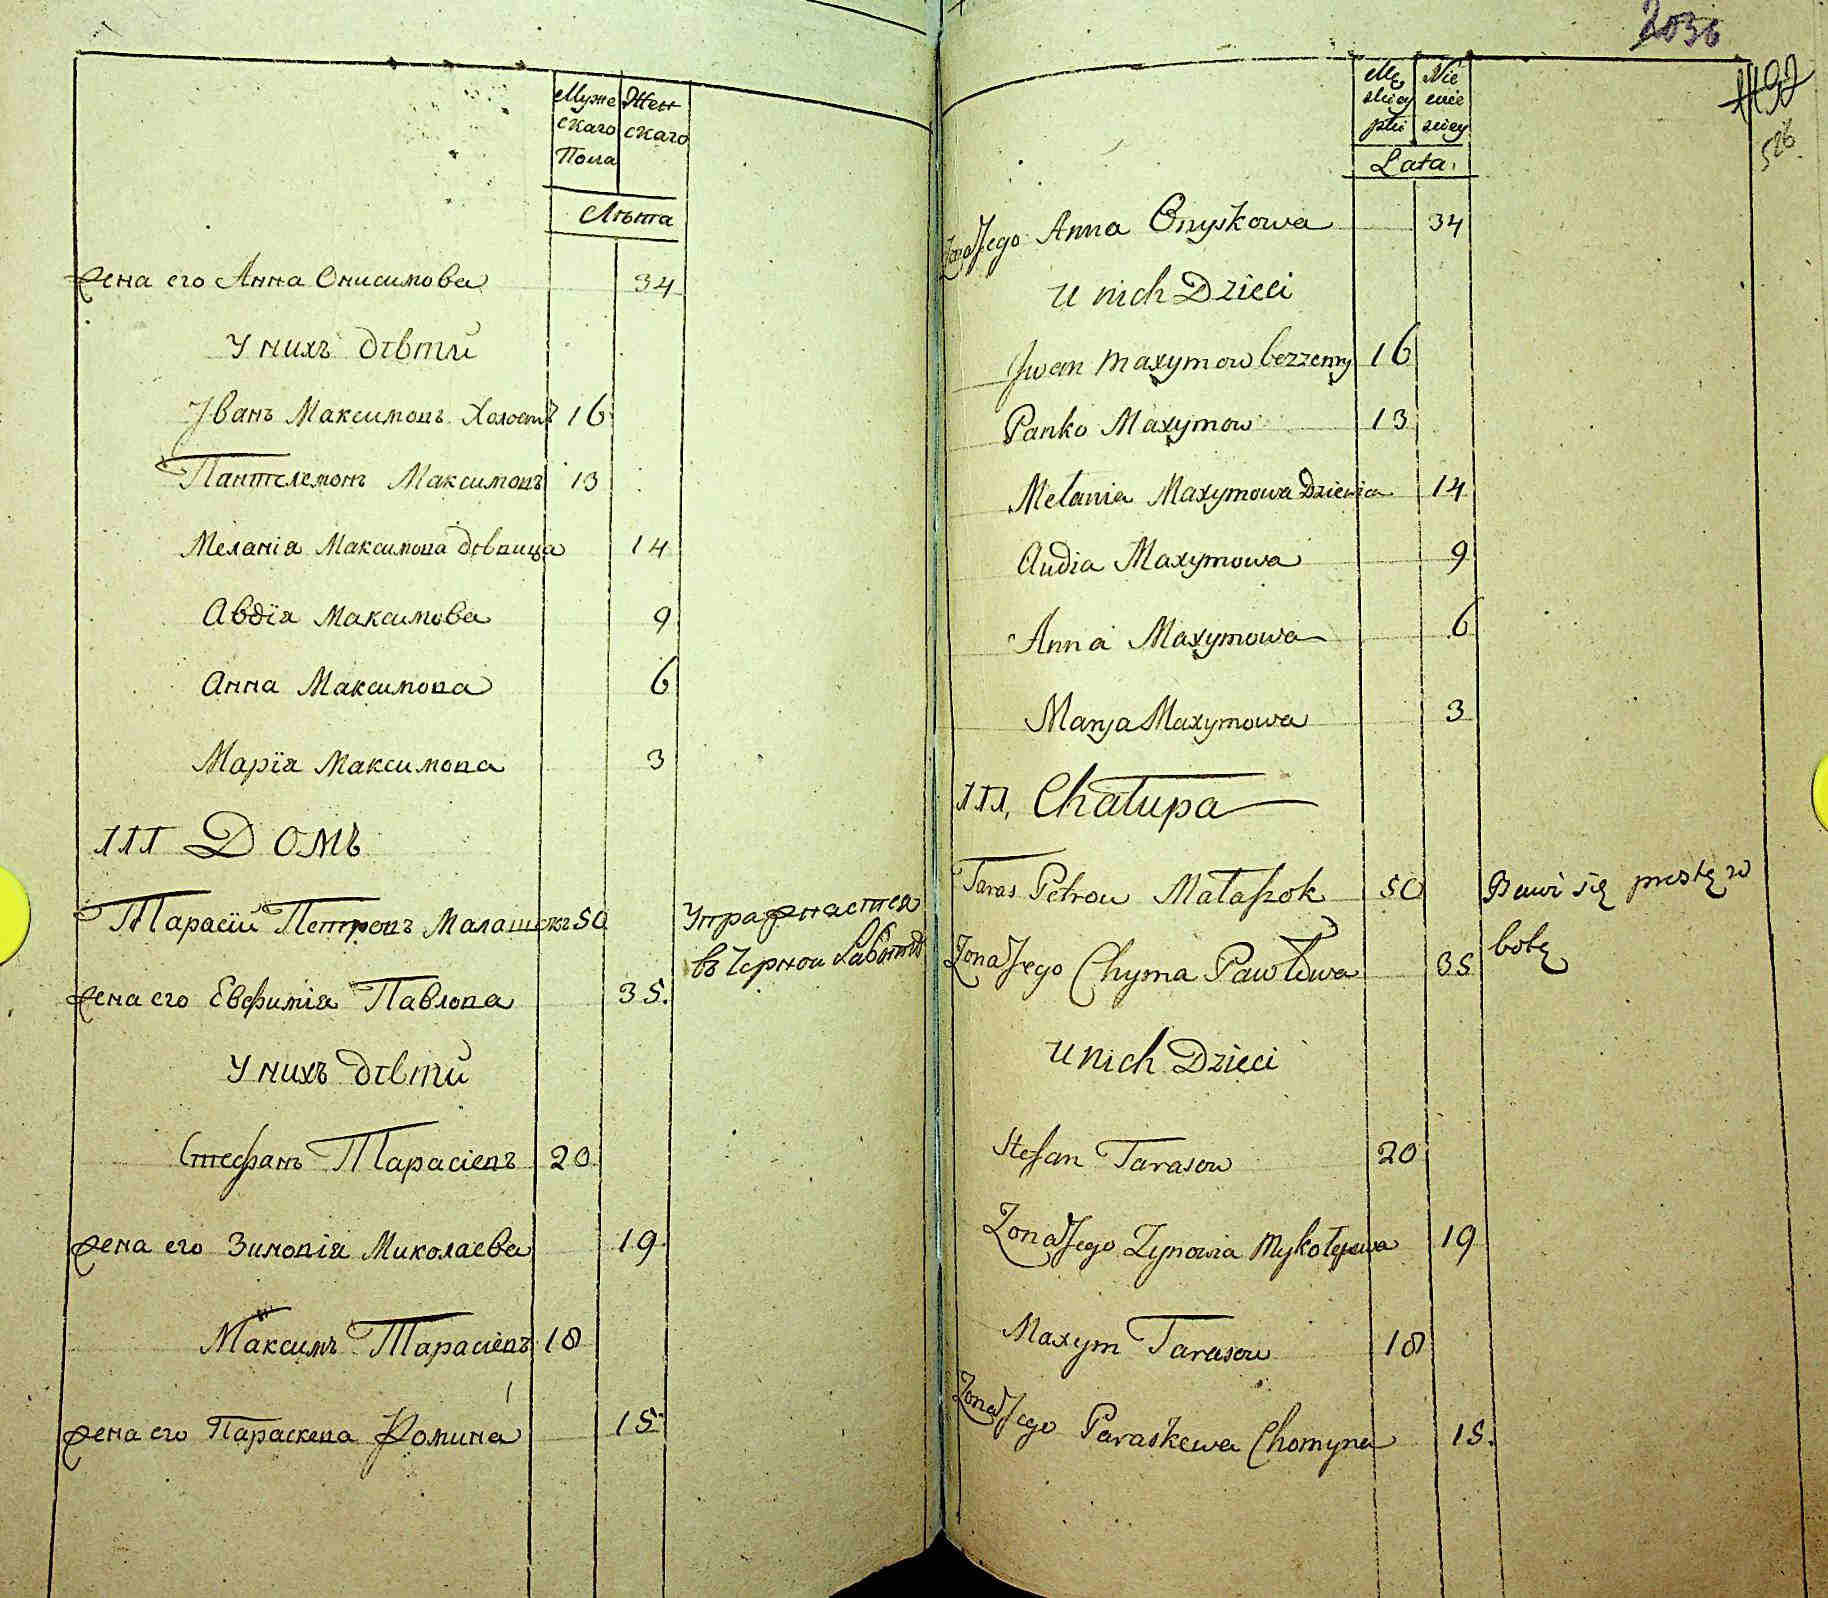 Муже
скаго
Пола
Жен
скаго
Лѣта
жена его Анна Онисимова 34
У нихъ дѣти
Иванъ Максимовъ Холостъ 16
Пантелемонъ Максимовъ 13
Меланія Максимова дѣвица 14
Авдїя Максимова 9
Анна Максимова 6
Марїя Максимова 3
III Домъ
Тарасій Петровъ Малашокъ 50 Упражнается
в черной работѣ
жена его Евфимія Павлова 35.
У нихъ дѣти
Стефанъ Тарасіевъ 20
жена его Зиновія Миколаева 19
Максимъ Тарасіевъ 18
жена его Параскева Фомина 15
2036
1192
526
Mę
skiey
płci
Nie
wie
sciey
Lata.
Zona Jego Anna Onyskowa 34
u nich Dzieci
Jwan Maxymow bezzenny 16
Panko Maxymow 13
Melania Maxymowa Dziewia 14
Audia Maxymowa 9
Anna Maxymowa 6
Marya Maxymowa 3
III, Chałupa
Taras Petrow Małaszok 50 Bawi się prostą ro
botą
Zona Jego Chyma Pawłowa 35
u nich Dzieci
Stefan Tarasow 20
Zona Jego Zynowia Mykołajewa 19
Maxym Tarasow 18
Zona Jego Paraskewa Chomyna 15.